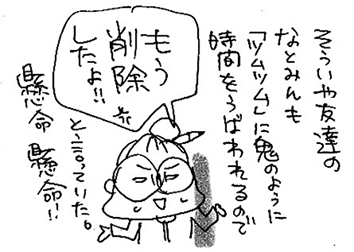 そういや友達の
なとみんも
「ツムツム」に鬼のように
時間をうばわれるので
もう
削除
したよ!!
と言っていた。
懸命
懸命!!